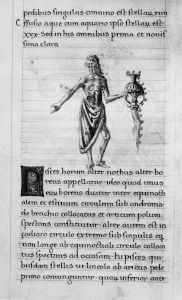 pedibus singulas omnino est stellaru
effusio aque cum aquario ipso stellaru est
xxx Sed in his omnibus prima et novis
sima clara
Pisces horum alter nothus alter bo
reus appellatur ideo quod unus
boreus dicitur inter equinocti
alem et estivum circulum sub androme
de brachio collocatus et articum polum
spectans constituitur alter autem est in
zodiaco circulo extremo sub scapulis
non longe ab equinoctiali circulo colloca
tus spectans ad occasum Hi pisces qui
busdam stellis ut lineola ab ariete pede
primo coniunguntur quorum inferior ante